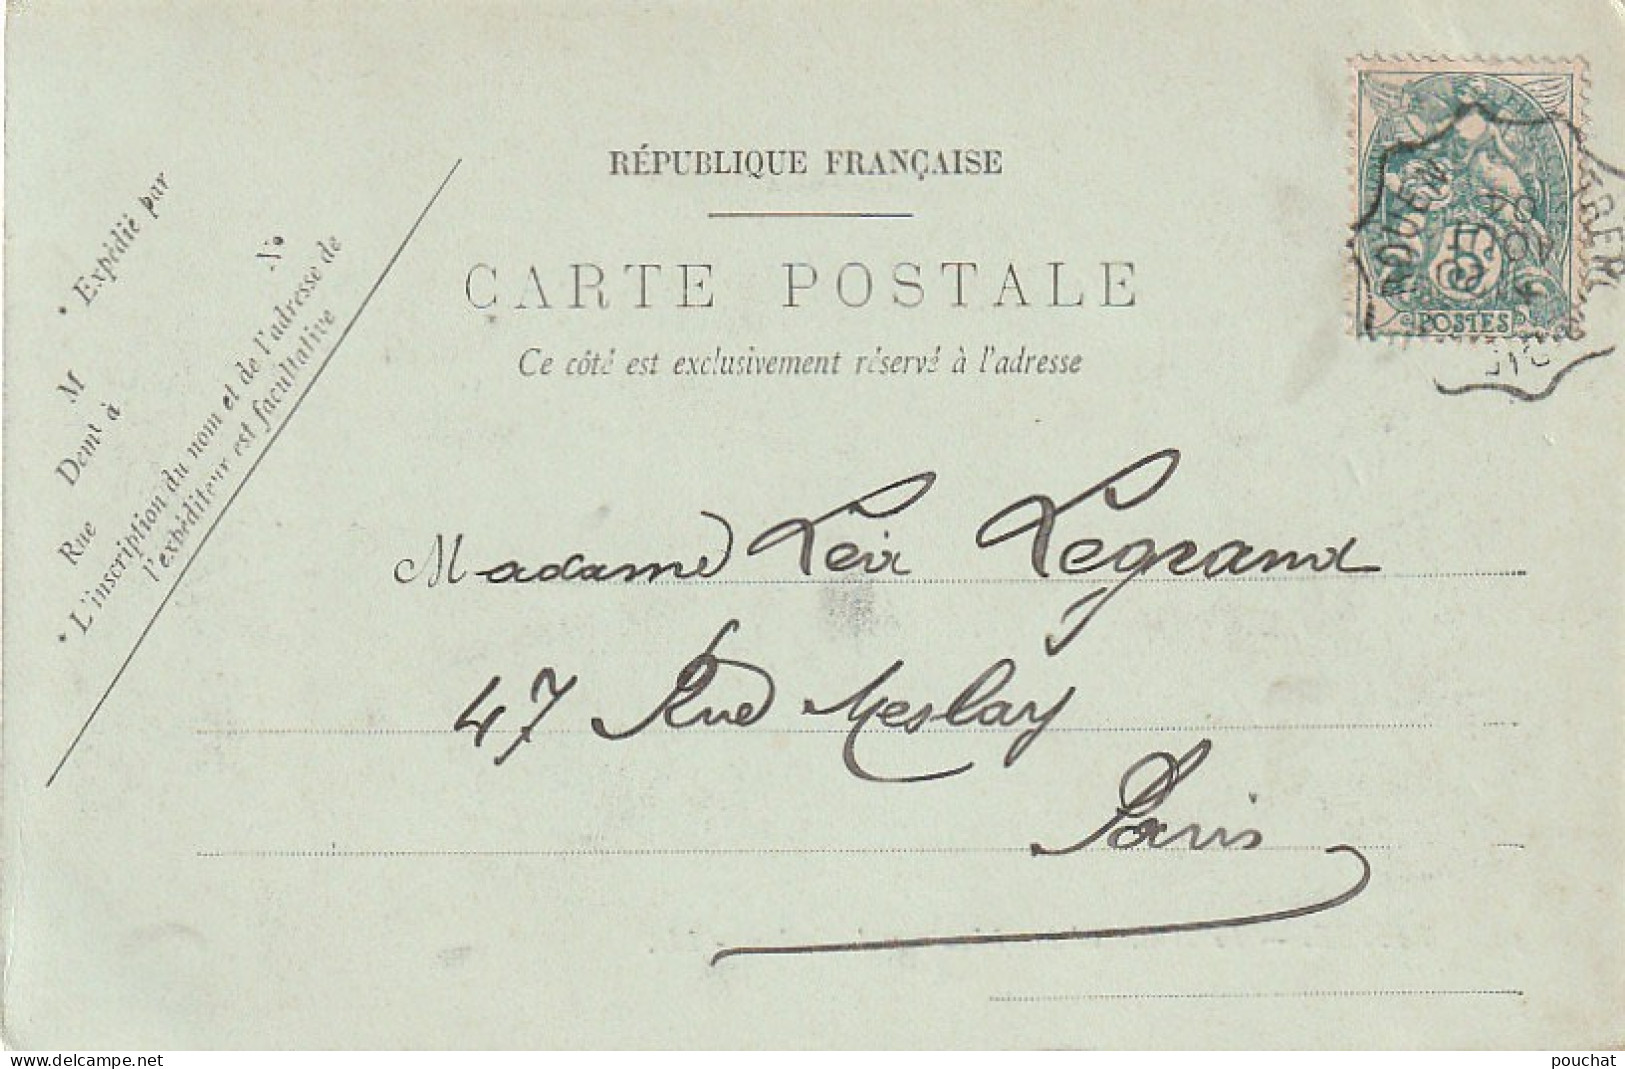 RÉPUBLIQUE FRANÇAISE
CARTE POSTALE
Ce côté est exclusivement réservé à l'adresse
* Expédié par
M
Demt à
Rue N°
* L'inscription du nom et de l'adresse de
l'expéditeur est facultative
ROUEN
5
POSTES
Madame Legrand
47 Rue Meslay
Paris
www.delcampe.net
pouchat